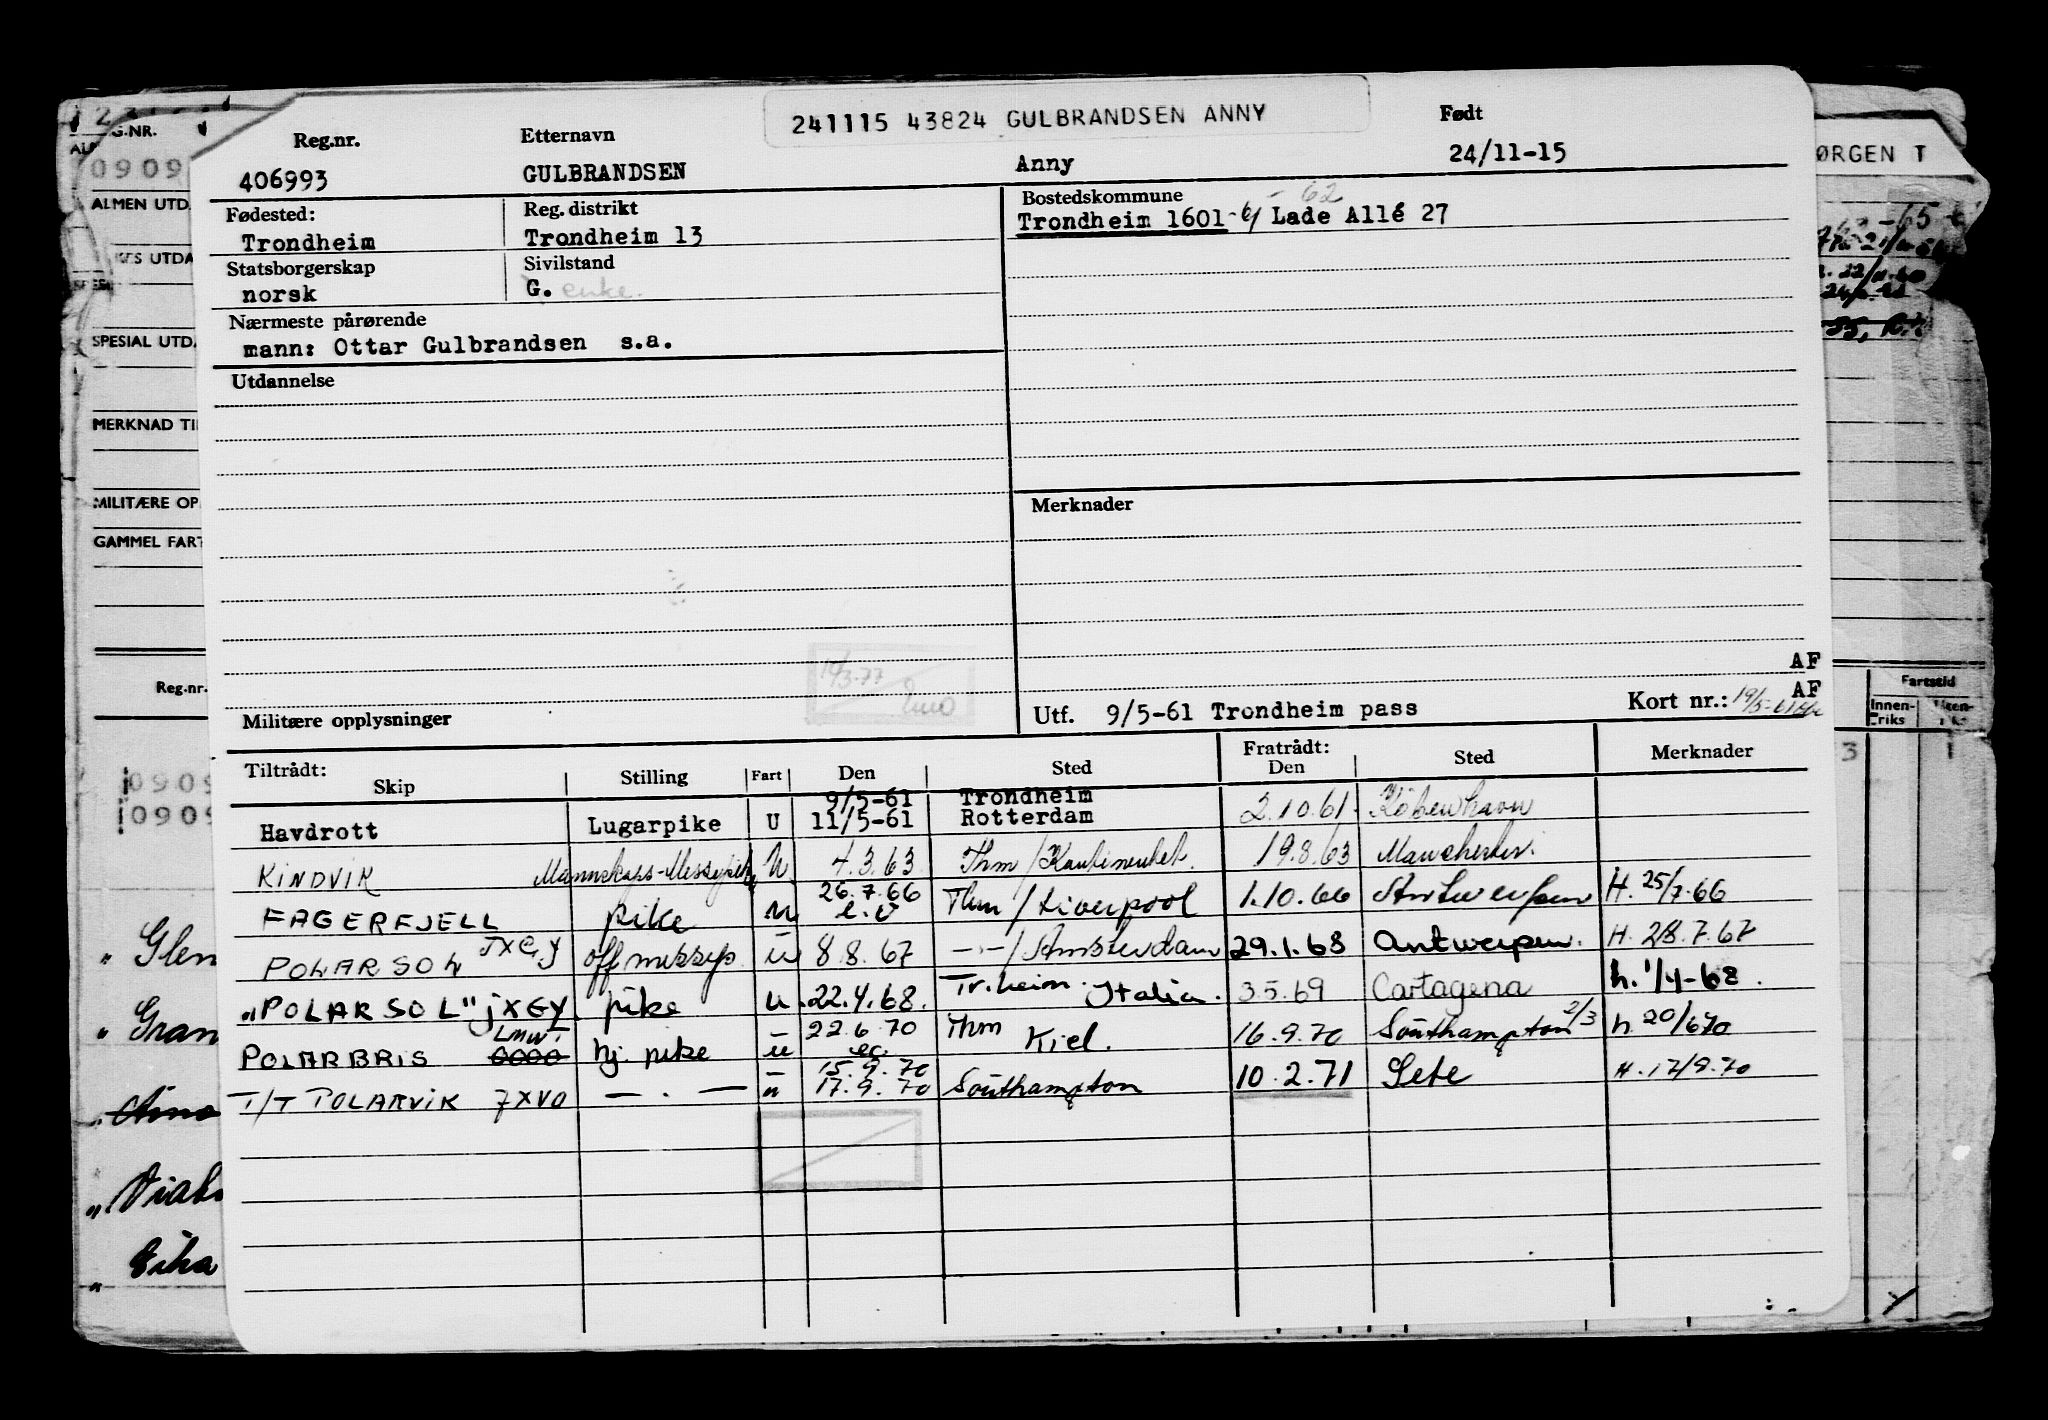 241115 43824 GULBRANDSEN ANNY
Reg.nr. Etternavn Født
406993 GULBRANDSEN Anny 24/11-15
Fødested: Reg. distrikt Bostedskommune - 62
Trondheim Trondheim 13 Trondheim 1601 - 61 Lade Allé 27
Statsborgerskap Sivilstand
norsk G. enke.
Nærmeste pårørende
mann: Ottar Gulbrandsen s.a.
Utdannelse
Merknader
AF
AF
Militære opplysninger Utf. 9/5-61 Trondheim pass Kort nr.: 19/5-61
19/3-77
Tiltrådt: Fratrådt:
Skip Stilling Fart Den Sted Den Sted Merknader
9/5-61 Trondheim
Havdrott Lugarpike U 11/5-61 Rotterdam 2.10.61. København
KINDVIK Mannskaps-Messepike U 4.3.63 Thm / 19.8.63 Manchester.
26.7.66
FAGERFJELL pike U Thm / Liverpool 1.10.66 Antwerpen H. 25/7.66
POLARSOL JXGY off messep. u 8.8.67 -"- / Amsterdam 29.1.68 Antwerpen. H. 28.7.67
"POLARSOL" JXGY pike u 22.4.68. Tr.heim. Italia. 3.5.69 Cartagena h. 1/4-68.
LMWI 22.6.70
POLARBRIS hj. pike u Thm Kiel. 16.9.70 Southampton 2/3 h 20/6 70
15.9.70
T/T POLARVIK JXVO - " - u 17.9.70 Southampton 10.2.71 Sete H. 17/9.70
G.NR.
0909
ALMEN UTD
UTDA
SPESIAL UTDA
MERKNAD TI
MILITÆRE OP
GAMMEL FART
Reg.nr.
0909
0909
" Glen
" Gran
ØRGEN T
-65
Fartstid
Innen-
riks
3 1